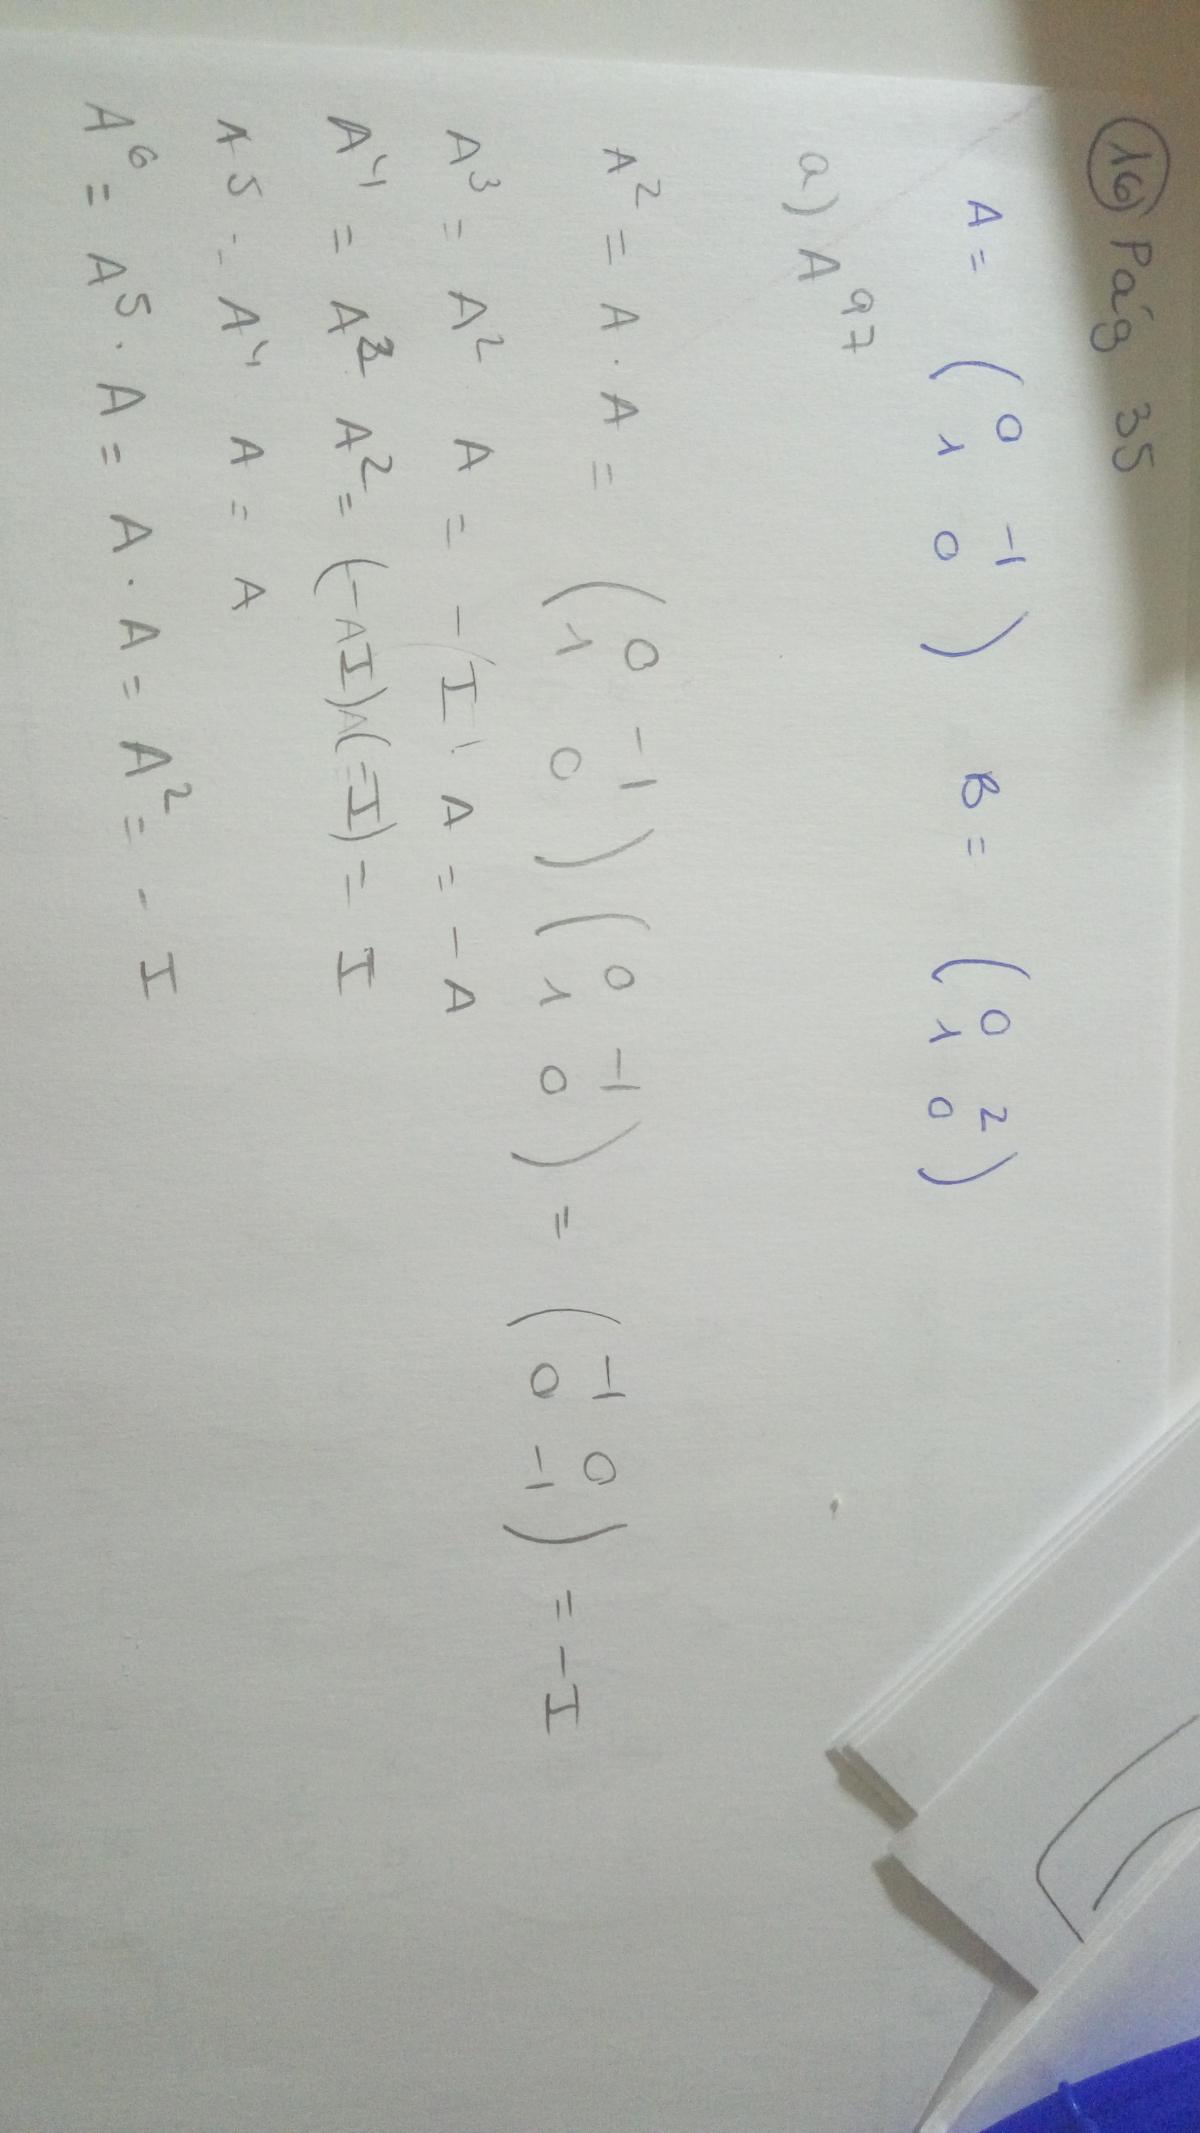 16) Pág 35
A = ( 0 -1 B = ( 0 2
1 0 ) 1 0 )
a) A^97
A^2 = A · A = ( 0 -1 ( 0 -1 = ( -1 0 = - I
1 0 ) 1 0 ) 0 -1 )
A^3 = A^2 A = - I · A = - A
A^4 = A^2 A^2 = (- I) (-I) = I
A^5 = A^4 A = A
A^6 = A^5 · A = A · A = A^2 = - I